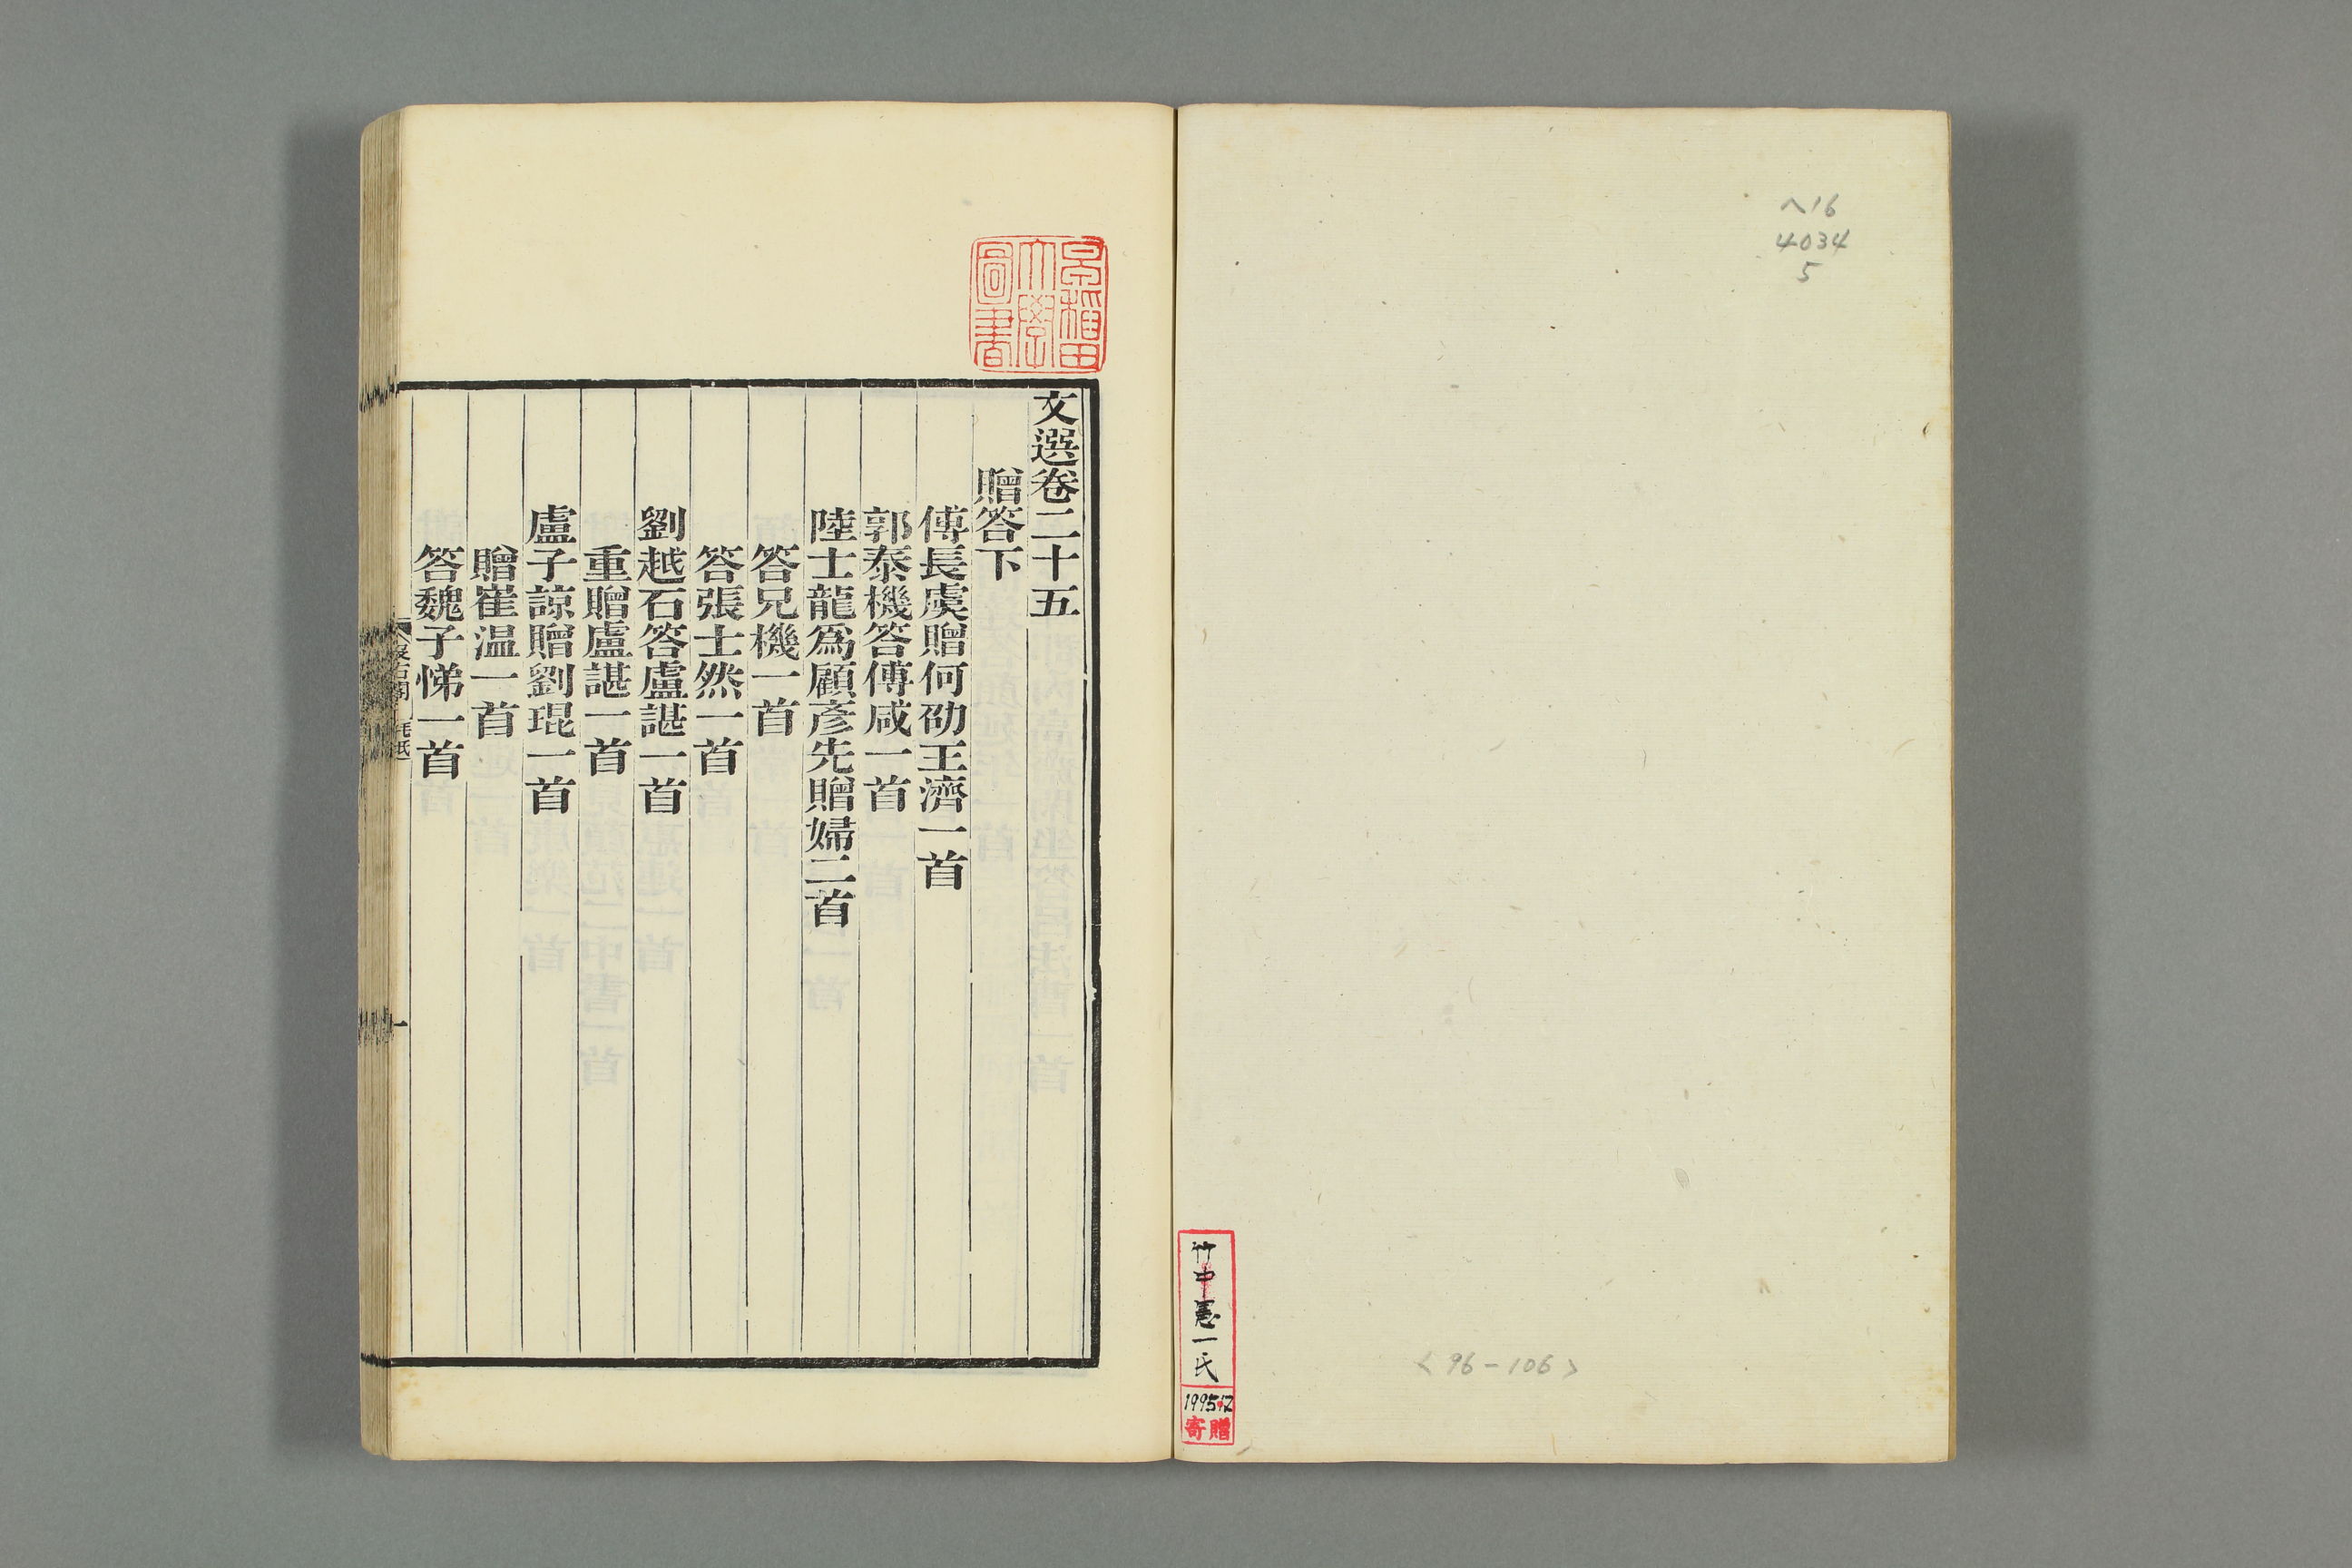 ヘ16
4034
5
竹中憲一氏
1995.12
寄贈
<96-106>
早稲田
大學
圖書
文選卷二十五
贈答下
傅長虞贈何劭王濟一首
郭泰機答傅咸一首
陸士龍爲顧彥先贈婦二首
答兄機一首
答張士然一首
劉越石答盧諶一首
重贈盧諶一首
盧子諒贈劉琨一首
贈崔温一首
答魏子悌一首